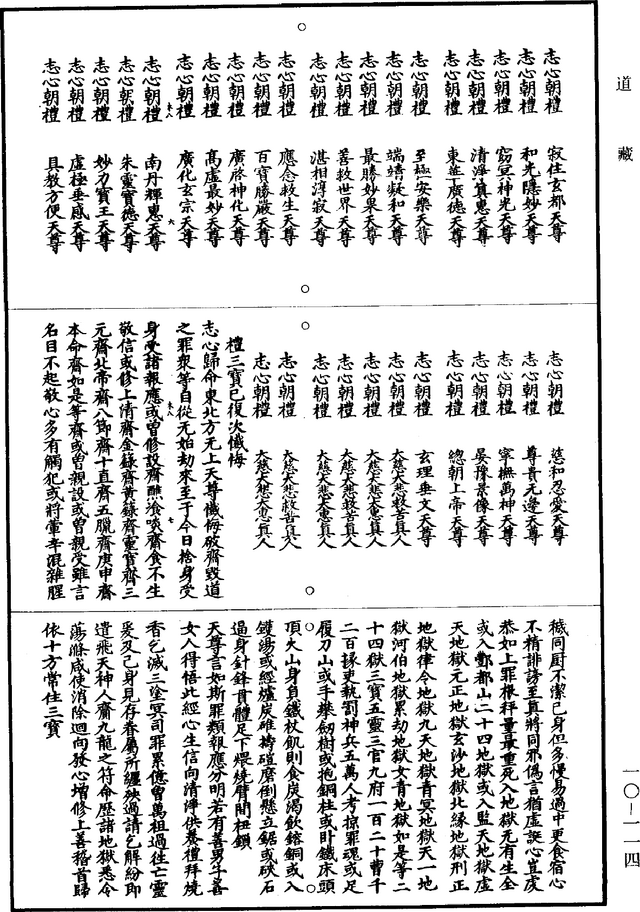 道藏
志心朝禮　寂住玄都天尊
志心朝禮　和光隱妙天尊
志心朝禮　窈冥神光天尊
志心朝禮　清淨真惠天尊
志心朝禮　東華廣德天尊
志心朝禮　至極安樂天尊
志心朝禮　端嘿凝和天尊
志心朝禮　最勝妙果天尊
志心朝禮　善救世界天尊
志心朝禮　湛相淳寂天尊
志心朝禮　應念救生天尊
志心朝禮　百寶勝嚴天尊
志心朝禮　廣啓神化天尊
志心朝禮　高虛最妙天尊
志心朝禮　廣化玄宗天尊
志心朝禮　南丹輝惠天尊
志心朝禮　朱靈寶德天尊
志心朝禮　妙力寶王天尊
志心朝禮　虛極垂感天尊
志心朝禮　具教方便天尊
志心朝禮　慈和忍愛天尊
志心朝禮　尊貴无邊天尊
志心朝禮　寧撫萬神天尊
志心朝禮　晏豫業像天尊
志心朝禮　總朝上帝天尊
志心朝禮　玄理垂文天尊
志心朝禮　大慈大悲救苦真人
志心朝禮　大慈大悲大惠真人
志心朝禮　大慈大悲救苦真人
志心朝禮　大慈大悲大惠真人
志心朝禮　大慈大悲救苦真人
志心朝禮　大慈大悲大惠真人
禮三寶已復次懺悔
志心歸命東北方无上天尊懺悔破齋毀道
之罪衆等自從无始劫來至于今日捨身受
身受諸報應或曾修設齋醮飡啖齋食不生
敬信或修上清齋金錄齋黃錄齋靈寶齋三
元齋北帝齋八節齋十直齋五臘齋庚申齋
本命齋如是等齋或曾親設或曾親受雖言
名目不起敬心多有觸犯或將葷辛混雜腥
穢同厨不潔己身但多慢易過中更食宿心
不精誹謗至真將同邪僞言猶虛誕心豈虔
恭如上罪根秤量最重死入地獄无有生全
或入酆都山二十四地獄或入監天地獄虛
天地獄元正地獄玄沙地獄北緣地獄刑正
地獄律令地獄九天地獄青冥地獄天一地
獄河伯地獄累劫地獄女青地獄如是等二
十四獄三寶五靈三官九府一百二十曹千
二百掾吏執罰神兵五萬人考掠罪魂或足
履刀山或手攀劒樹或抱銅柱或卧鐵床頭
頂火山身負鐵杖飢則食炭渴飲鎔銅或入
鑊湯或經爐炭碓擣磑磨倒懸立鋸或硤石
逼身針鋒貫體足下煨燒臂間杻鎖
天尊言如斯罪類報應分明若有善男子善
女人得悟此經心生信向清淨供養禮拜燒
香乞滅三塗冥司罪累億曾萬祖過往亡靈
爰及己身見存眷屬所纏殃過請乞解紛即
遣飛天神人齎九龍之符命歷諸地獄悉令
蕩滌咸使消除迴向發心增修上善稽首歸
依十方常住三寶
一〇—一一四